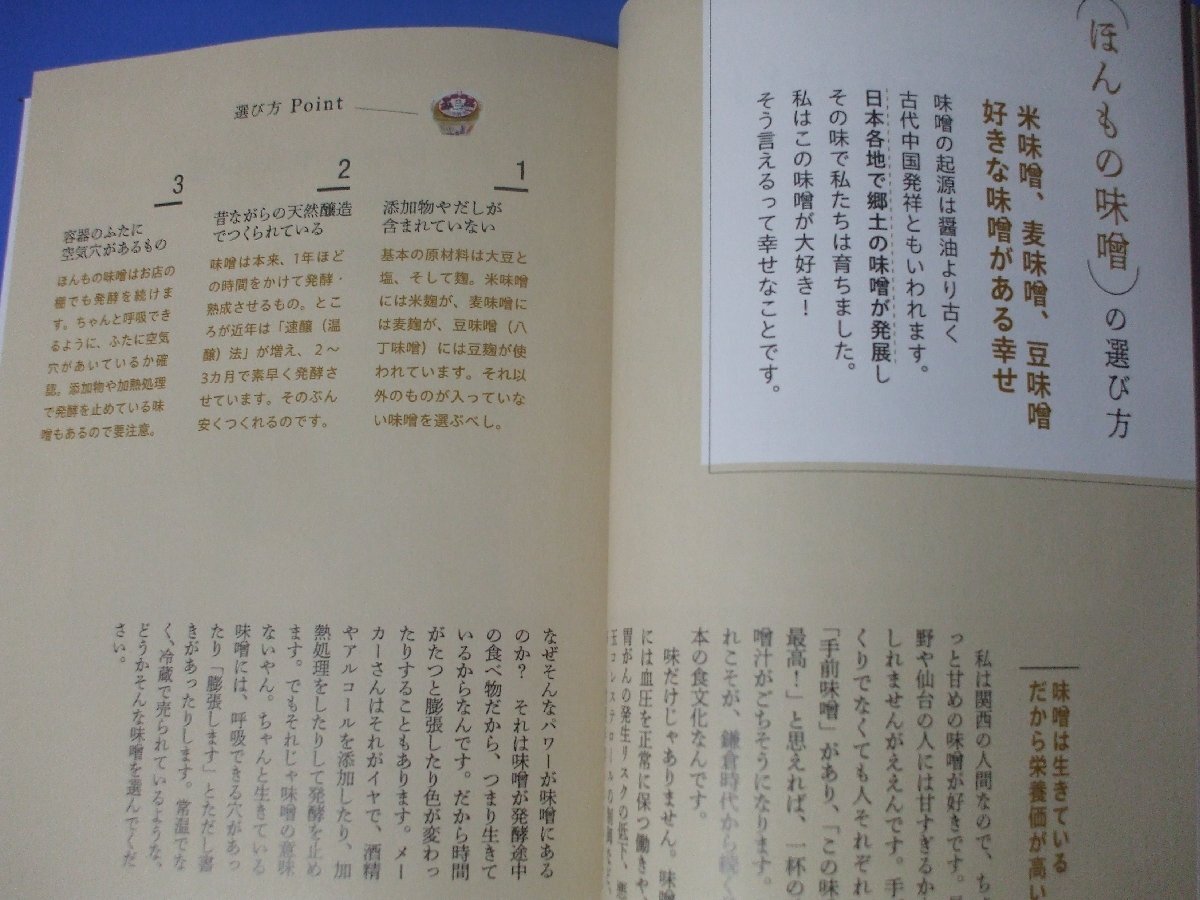 ほんもの味噌の選び方
米味噌、麦味噌、豆味噌
好きな味噌がある幸せ
味噌の起源は醤油より古く
古代中国発祥ともいわれます。
日本各地で郷土の味噌が発展し
その味で私たちは育ちました。
私はこの味噌が大好き！
そう言えるって幸せなことです。
味噌は生きている
だから栄養価が高い
私は関西の人間なので、ち
っと甘めの味噌が好きです。
野や仙台の人には甘すぎるか
しれませんがええんです。手
くりでなくても人それぞれ
「手前味噌」があり、「この味
最高！」と思えれば、一杯の
噌汁がごちそうになります。
れこそが、鎌倉時代から続く
本の食文化なんです。
味だけじゃありません。味噌
には血圧を正常に保つ働きや、
胃がんの発生リスクの低下、悪
玉コレステロールの抑制など、
選び方 Point
1
添加物やだしが
含まれていない
基本の原材料は大豆と
塩、そして麹。米味噌
には米麹が、麦味噌に
は麦麹が、豆味噌（八
丁味噌）には豆麹が使
われています。それ以
外のものが入っていな
い味噌を選ぶべし。
2
昔ながらの天然醸造
でつくられている
味噌は本来、1年ほど
の時間をかけて発酵・
熟成させるもの。とこ
ろが近年は「速醸（温
醸）法」が増え、2〜
3カ月で素早く発酵さ
せています。そのぶん
安くつくれるのです。
3
容器のふたに
空気穴があるもの
ほんもの味噌はお店の
棚でも発酵を続けま
す。ちゃんと呼吸でき
るように、ふたに空気
穴があいているか確
認。添加物や加熱処理
で発酵を止めている味
噌もあるので要注意。
なぜそんなパワーが味噌にある
のか？　それは味噌が発酵途中
の食べ物だから、つまり生きて
いるからなんです。だから時間
がたつと膨張したり色が変わっ
たりすることもあります。メー
カーさんはそれがイヤで、酒精
やアルコールを添加したり、加
熱処理をしたりして発酵を止め
ます。でもそれじゃ味噌の意味
ないやん。ちゃんと生きている
味噌には、呼吸できる穴があっ
たり「膨張します」とただし書
きがあったりします。常温でな
く、冷蔵で売られているような、
どうかそんな味噌を選んでくだ
さい。